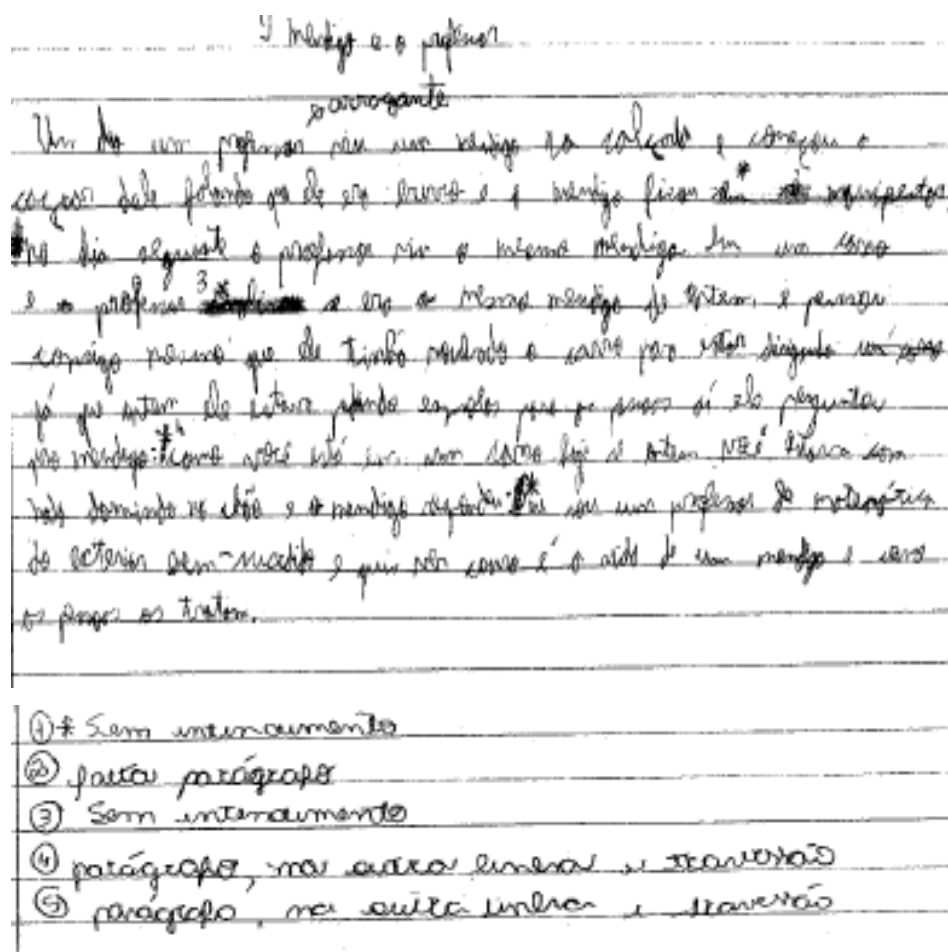 O mendigo e o professor
o arrogante
Um dia um professor viu um mendigo na calçada e começou a
caçoar dele falando que ele era burro e o mendigo ficou
no dia seguinte o professor viu o mesmo mendigo em um carro
e o professor 3* a era o mesmo mendigo de ontem, e pensou
consigo mesmo que ele tinha roubado o carro para estar dirigindo
já que ontem ele estava pedindo esmolas para as pessoas aí ele pergunta
pro mendigo: *4 como você está em um carro hoje e ontem você estava com
dormindo no chão e o mendigo respondeu: eu sou um professor de matemática
do exterior bem-sucedido e quis ver como é a vida de um mendigo e como
as pessoas os tratam.
① * Sem intendimento
② falta parágrafo
③ Sem intendimento
④ parágrafo, na outra linha e travessão
⑤ parágrafo, na outra linha e travessão